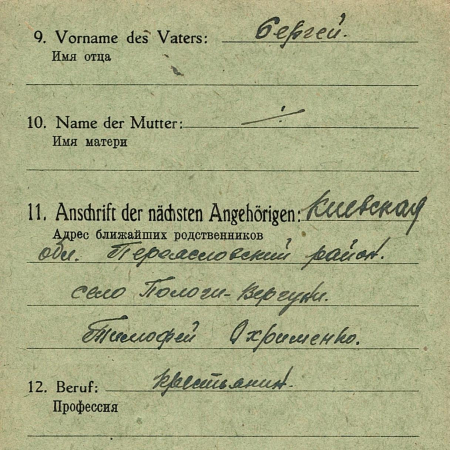 9. Vorname des Vaters: Сергей.
Имя отца
10. Name der Mutter: ·/.
Имя матери
11. Anschrift der nächsten Angehörigen: Киевская
Адрес ближайших родственников
обл. Переяславский район.
село Пологи-Вергуни.
Тимофей Охрименко.
12. Beruf: крестьянин.
Профессия